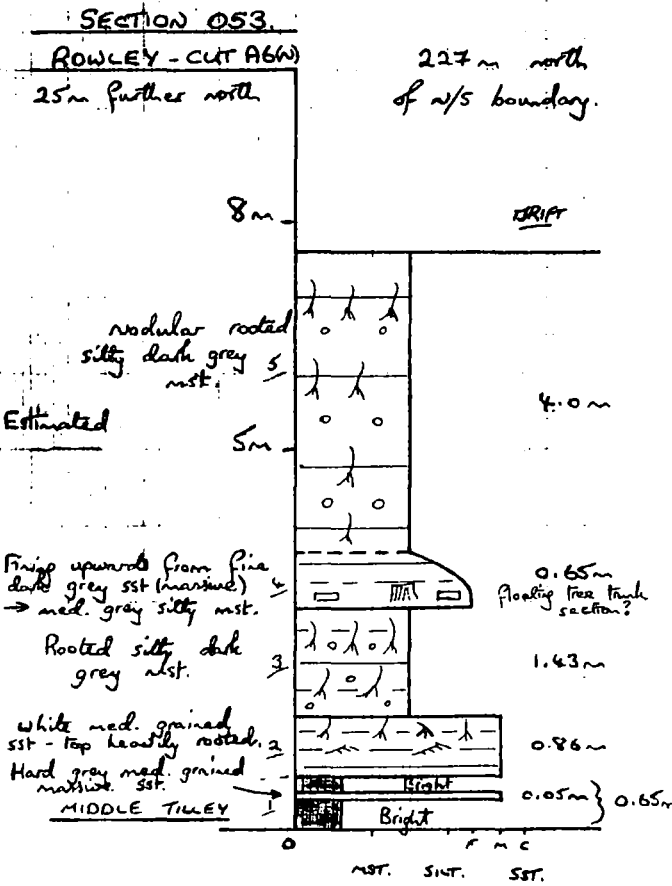 SECTION 053.
ROWLEY - CUT A6(N)
25m further north
227m north
of N/S boundary.
8m
DRIFT
nodular rooted
silty dark grey
mst.
5
4.0m
Estimated
5m
Fining upwards from fine
dark grey sst (massive)
→ med. grey silty mst.
4
0.65m
floating tree trunk
section?
Rooted silty dark
grey mst.
3
1.43m
White med. grained
sst - top heavily rooted.
2
0.86m
Hard grey med. grained
massive sst.
Bright
0.05m } 0.65m
MIDDLE TILLEY
1
Bright
0
F M C
MST. SILT. SST.